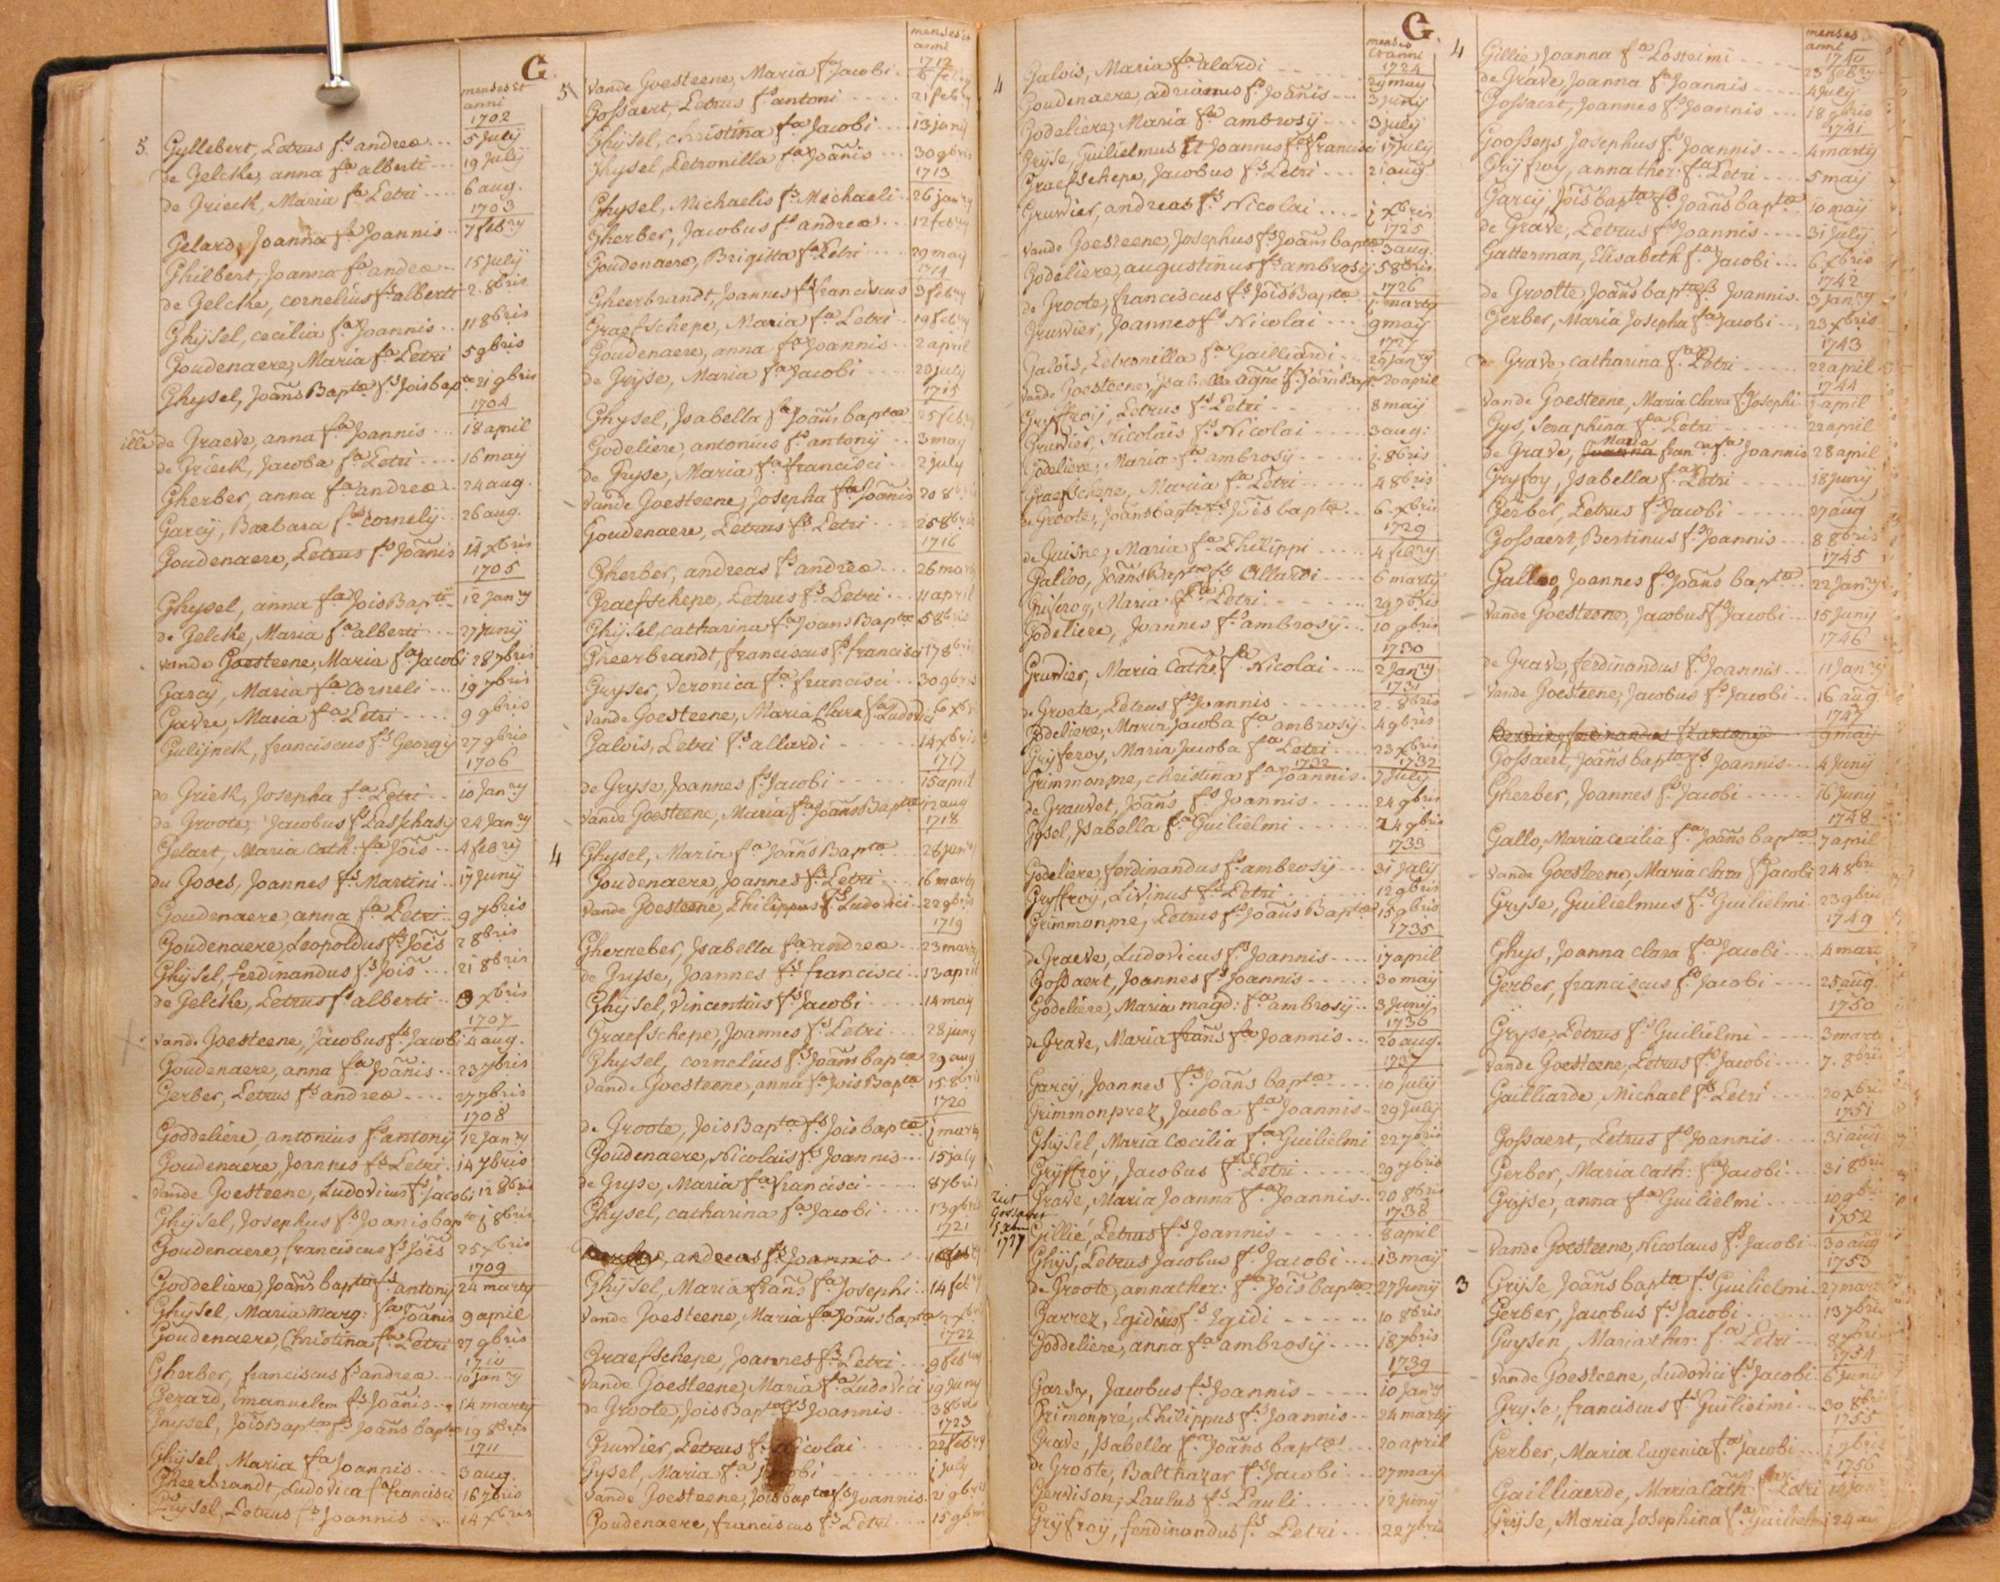 G
menses et
anni
1702
5 Gyllebert, Petrus fs andreæ 5 July
de Gelcke, anna fa alberti 19 July
de Grieck, Maria fa Petri 6 aug.
1703
Gelard, Joanna fa Joannis 7 febry
Ghilbert, Joanna fa andreæ 15 July
de Gelcke, cornelius fs alberti 2. 8bris
Ghysel, cecilia fa Joannis 11 8bris
Goudenaere, Maria fa Petri 5 9bris
Ghysel, Joãns Bapta fs Jois bapte 21 9bris
1704
de Graeve, anna fa Joannis 18 april
de Grieck, Jacoba fa Petri 16 may
Gherber, anna fa andreæ 24 aug.
Garcÿ, Barbara cornelÿ 26 aug.
Goudenaere, Petrus fs Joãnis 14 xbris
1705
Ghysel, anna fa Jois Baptæ 12 Janry
de Gelcke, Maria fa alberti 27 Junÿ
vande Goesteene, Maria fa Jacobi 28 7bris
Garcÿ, Maria fa Corneli 19 7bris
Gavre, Maria fa Petri 9 9bris
Gulijnck, franciscus fs Georgÿ 27 9bris
1706
de Griek, Josepha fa Petri 10 Janry
de Groote, Jacobus fs Passchasÿ 24 Janry
Gelart, Maria Cath: fa Jois 4 febry
du Goses, Joannes fs Martini 17 Junÿ
Goudenaere, anna fa Petri 9 7bris
Goudenaere, Leopoldus fs Jois 2 8bris
Ghÿsel, ferdinandus fs Jois 21 8bris
de Gelcke, Petrus fs alberti 3 xbris
1707
vande Goesteene, Jacobus fs Jacobi 4 aug.
Goudenaere, anna fa Joãnis 23 7bris
Gerber, Petrus fs andreæ 27 7bris
1708
Goddeliere, antonius fs antonÿ 12 Janry
Goudenaere, Joannes fs Petri 14 7bris
vande Goesteene, Ludovicus fs Jacobi 12 8bris
Ghÿsel, Josephus fs Joanis bapta 8bris
Goudenaere, franciscus fs Jois 25 xbris
1709
Goddeliere, Joãns bapta fs antonÿ 24 martÿ
Ghÿsel, Maria Marg: fa Joãnis 9 april
Goudenaere, Christina fa Petri 27 9bris
1710
Gherber, franciscus fs andreæ 10 Janry
Gerard, Emanuelem fs Joãnis 14 martÿ
Ghysel, Jois Bapta fs Joãns bapta 19 8bris
1711
Ghÿsel, Maria fa Joannis 3 aug.
Gheerbrandt, Ludovica fa francisci 16 7bris
Ghÿsel, Petrus fs Joannis 14 xbris
menses et
anni
1712
5 vande Goesteene, Maria fa Jacobi
Gossaert, Petrus fs antoni 21 febry
Ghÿsel, christina fa Jacobi 13 junÿ
Ghysel, Petronilla fa Joãnis 30 9bris
1713
Ghysel, Michaelis fs Michaeli 26 janry
Gherber, Jacobus fs andreæ 12 febry
Goudenaere, Brigitta fa Petri 29 may
1714
Gheerbrandt, Joannes fs franciscus 3 febry
Graefschepe, Maria fa Petri 19 febry
Goudenaere, anna fa Joannis 2 april
de Grÿse, Maria fa Jacobi 22 july
1715
Ghysel, Isabella fa Joãns baptæ 25 febry
Godeliere, antonius fs antonÿ 3 may
de Gryse, Maria fa francisci 2 july
vande Goesteene, Josepha fa Joãnis 20 8bris
Goudenaere, Petrus fs Petri 25 8bris
1716
Gherber, andreas fs andreæ 26 mart
Graefschepe, Petrus fs Petri 11 april
Ghÿsel, catharina fa Joans Bapta 5 8bris
Gheerbrandt, franciscus fs francisci 17 8bris
Gryser, veronica fa francisci 30 9bris
vande Goesteene, Maria Clara fa Ludovici 6 xbr
Galois, Petri fs allardi 14 xbris
1717
de Gryse, Joannes fs Jacobi 15 april
vande Goesteene, Maria fa Joãns Bapta 12 aug
1718
4 Ghysel, Maria fa Joãns Bapta 28 janry
Goudenaere, Joannes fs Petri 16 martÿ
vande Goesteene, Philippus fs Ludovici 22 9bris
1719
Gherreber, Isabella fa andreæ 23 martÿ
de Gryse, Joannes fs francisci 13 april
Ghÿsel, Vincentius fs Jacobi 14 may
Graefschepe, Joannes fs Petri 28 juny
Ghysel, cornelius fs Joãns bapta 29 aug
vande Goesteene, anna fa Jois Bapta 15 8bris
1720
de Groote, Jois Bapta fs Jois bapta 1 martÿ
Goudenaere, Nicolais fs Joannis 15 july
de Gryse, Maria fa francisci 8 7bris
Ghysel, catharina fa Jacobi 13 9bris
1721
andreas fs Joannis
Ghÿsel, Maria frans fa Josephi 14 febry
vande Goesteene, Maria fa Joãns bapta
1722
Graefschepe, Joannes fs Petri 9 febry
vande Goesteene, Maria fa Ludovici 19 Juny
de Groote, Jois Bapta fs Joannis 3 8bris
1723
Gruwier, Petrus fs Nicolai 22 febry
Gysel, Maria fa Jacobi 1 july
vande Goesteene, Jois bapta fs Joannis 21 9bris
Goudenaere, franciscus fs Petri 15 9bris
G.
menses
et anni
1724
4 Galois, Maria fa alardi 29 may
Goudenaere, adrianus fs Joãnis 3 junÿ
Godeliere, Maria fa ambrosÿ 3 july
Gryse, Guilielmus et Joannes fs francisci 17 july
Graefschepe, Jacobus fs Petri 21 aug
Gruwier, andreas fs Nicolai 1 xbris
1725
vande Goesteene, Josephus fs Joãns bapta 3 aug.
Godeliere, augustinus fs ambrosÿ 5 8bris
1726
de Groote, franciscus fs Jois Bapta 1 martÿ
Gruwier, Joannes fs Nicolai 9 may
1727
Galois, Petronilla fa Gailliardi 29 Janry
vande Goesteene, Isabella agne fa Joãns Bapta 20 april
Gryffroij, Petrus fs Petri 8 may
Gruwier, Nicolais fs Nicolai 3 aug:
Godeliere, Maria fa ambrosÿ 1. 8bris
Graefschepe, Maria fa Petri 4 8bris
de Groote, Joãns bapta fs Jois bapta 6 xbris
1729
de Guisne, Maria fa Philippi 4 febry
Galloo, Joãns Bapta fs Allardi 6 martÿ
Grifroy, Maria fa Petri 29 7bris
Godeliere, Joannes fs ambrosÿ 10 9bris
1730
Gruwier, Maria Cath: fa Nicolai 2 Janry
1731
de Groote, Petrus fs Joannis 2. 8bris
Godeliere, Maria Jacoba fa ambrosÿ 4 9bris
Gryferoy, Maria Jacoba fa Petri 23 xbris
1732 1732
Grimmonpre, christina fa Joannis 7 July
de Grauwet, Joãns fs Joannis 24 9bris
Gysel, Isabella fa Guilielmi 24 9bris
1733
Godeliere, ferdinandus fs ambrosÿ 31 July
Gryffroy, Livinus fs Petri 12 9bris
Grimmonpre, Petrus fs Joãns Bapta 15 9bris
1735
de Graeve, Ludovicus fs Joannis 17 april
Gossaert, Joannes fs Joannis 30 may
Godeliere, Maria magd: fa ambrosÿ 3 Junÿ
1736
de Grave, Maria frans fa Joannis 20 aug.
1737
Garcÿ, Joannes fs Joãns bapta 10 july
Grimmonprez, Jacoba fa Joannis 29 July
Ghÿsel, Maria Cæcilia fa Guilielmi 22 7bris
Gryffroÿ, Jacobus fs Petri 29 7bris
Grave, Maria Joanna fa Joannis 20 8bris
1738
1727
Gillié, Petrus fs Joannis 8 april
Ghÿs, Petrus Jacobus fs Jacobi 13 maÿ
de Groote, anna ther: fa Jois bapta 27 Junÿ
Garrez, Egidius fs Egidi 10 8bris
Goddeliere, anna fa ambrosÿ 18 xbris
1739
Garsy, Jacobus fs Joannis 10 Janry
Grimonpré, Philippus fs Joannis 24 martÿ
Grave, Isabella fa Joãns bapta 20 april
de Groote, Balthazar fs Jacobi 27 may
Gervison, Paulus fs Pauli 12 Junÿ
Gryfroÿ, ferdinandus fs Petri 22 7bris
menses
anni
1740
4 Gillie, Joanna fa Posteimi 23 febry
de Grave, Joanna fa Joannis 4 July
Gossaert, Joannes fs Joannis 18 9bris
1741
Goossens, Josephus fs Joannis 4 martÿ
Gryfroy, anna ther: fa Petri 5 maÿ
Garcÿ, Jois bapta fs Joãns bapta 10 maÿ
de Grave, Petrus fs Joannis 31 July
Gatterman, Elisabeth fa Jacobi 6 xbris
1742
de Grootte, Joãns bapta fs Joannis 3 Janry
Gerber, Maria Josepha fa Jacobi 23 xbris
1743
de Grave, catharina fa Petri 22 april
1744
vande Goesteene, Maria Clara fa Josephi 1 april
Gys, Seraphina fa Petri 22 april
Maria
de Grave, Joanna franca fa Joannis 28 april
Gryfoy, Isabella fa Petri 18 Junÿ
Gerber, Petrus fs Jacobi 27 aug
Gossaert, Bertinus fs Joannis 8 8bris
1745
Galloo, Joannes fs Joãns bapta 22 Janry
vande Goesteene, Jacobus fs Jacobi 15 Junÿ
1746
de Grave, ferdinandus fs Joannis 11 Janry
vande Goesteene, Jacobus fs Jacobi 16 aug
1747
9 maÿ
Gossaert, Joãns bapta fs Joannis 4 Junÿ
Gherber, Joannes fs Jacobi 16 Junÿ
1748
Gallo, Maria Cæcilia fa Joãns bapta 7 april
vande Goesteene, Maria Clara fa Jacobi 24 8bri
Gryse, Guilielmus fs Guilielmi 23 9bris
1749
Ghys, Joanna Clara fa Jacobi 4 mart
Gerber, franciscus fs Jacobi 25 aug
1750
Gryse, Petrus fs Guilielmi 3 martÿ
vande Goesteene, Petrus fs Jacobi 7. 8bris
Gailliarde, Michael fs Petri 20 xbris
1751
Gossaert, Petrus fs Joannis 31 aug
Gerber, Maria Cath: fa Jacobi 31 8bris
Gryse, anna fa Guilielmi 10 9bris
1752
vande Goesteene, Nicolaus fs Jacobi 30 aug
1753
3 Gryse Joãns bapta fs Guilielmi 27 mart
Gerber, Jacobus fs Jacobi 13 7bris
Guysen, Maria ther: fa Petri 8 xbri
1754
vande Goesteene, Ludovici fs Jacobi 6 Junÿ
Gryse, franciscus fs Guilielmi 30 8bri
1755
Gerber, Maria Eugenia fa Jacobi 1 9bris
1756
Gailliaerde, Maria Cath: fa Petri 14 Jan
Gryse, Maria Josephina fa Guilielmi 24 au